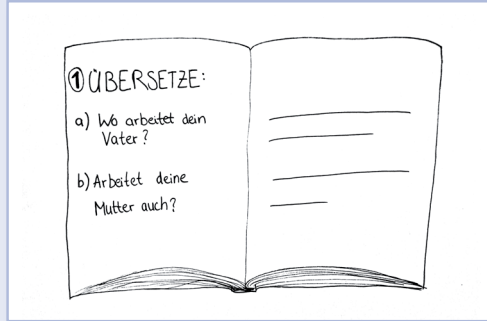 1 ÜBERSETZE:
a) Wo arbeitet dein
Vater?
b) Arbeitet deine
Mutter auch?